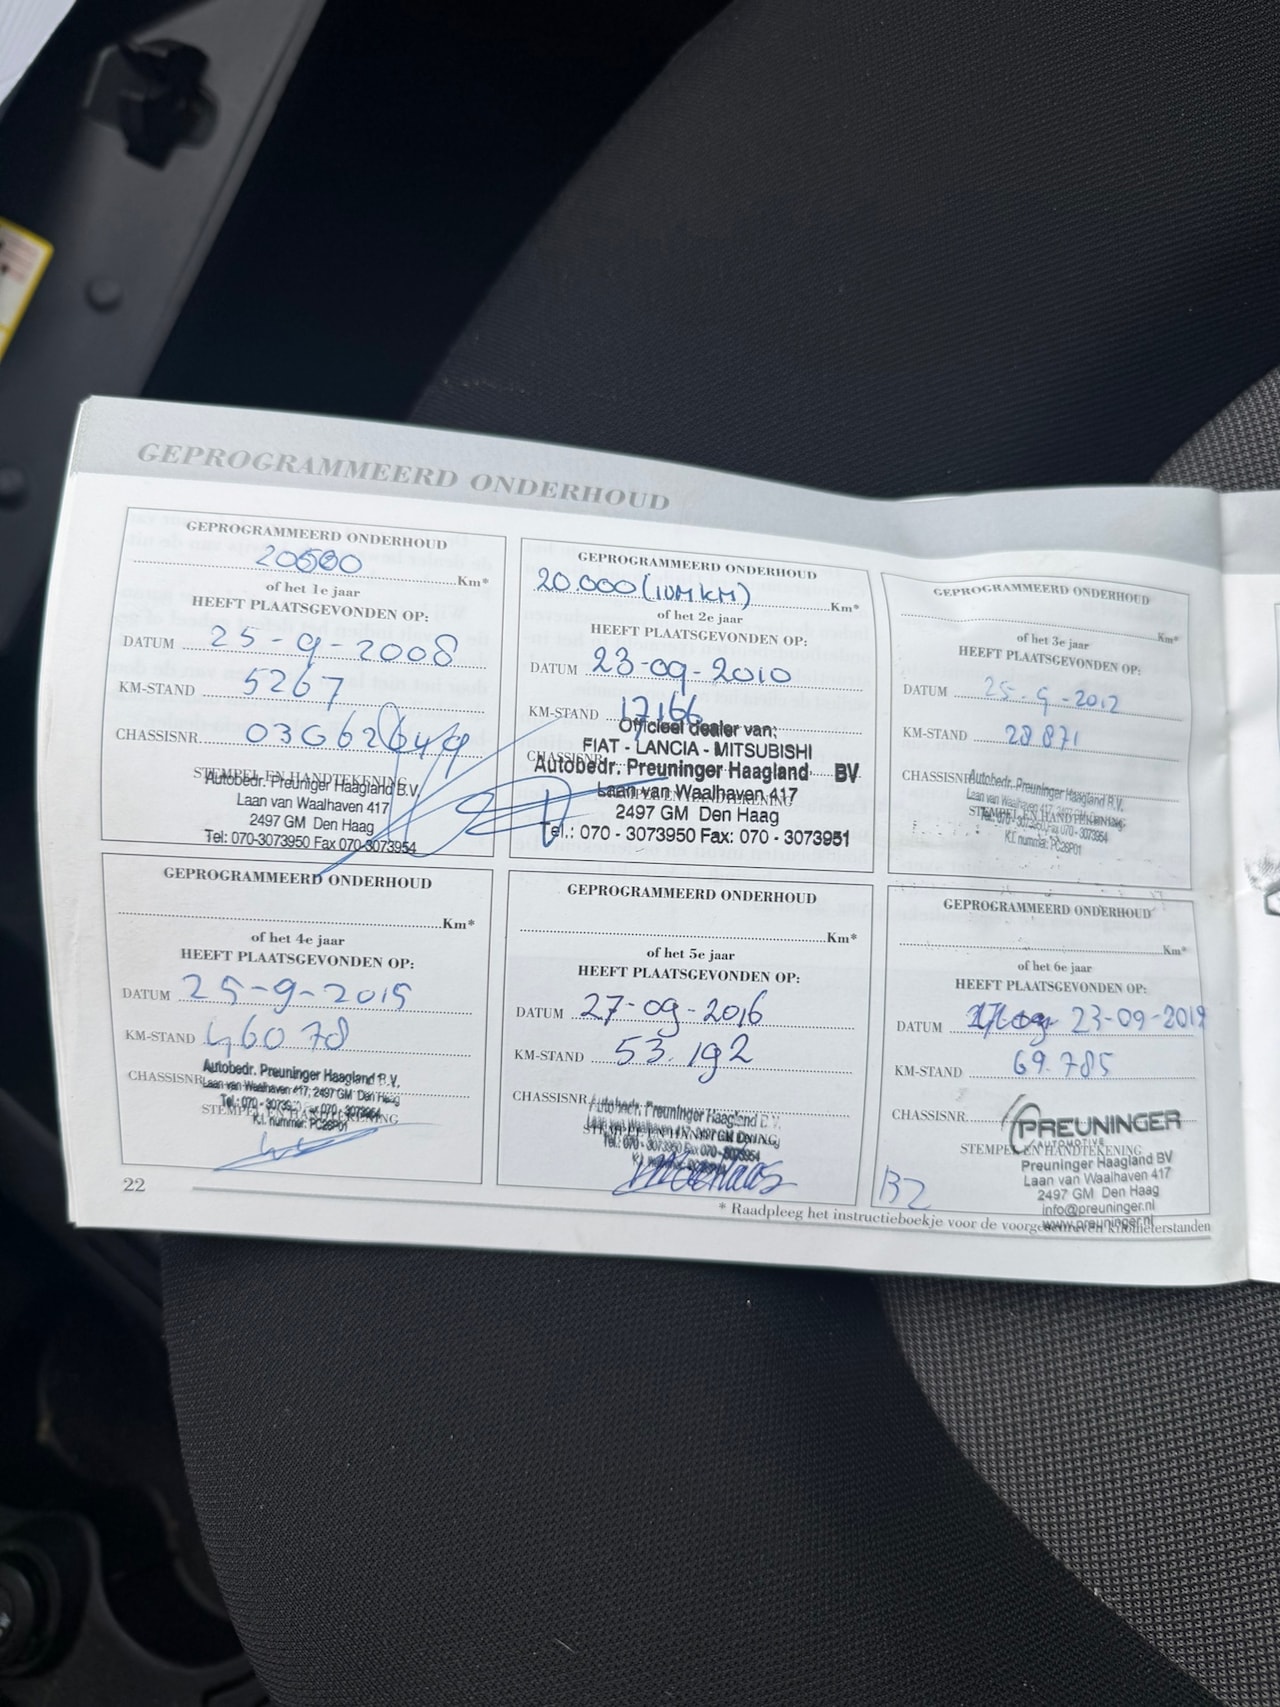 GEPROGRAMMEERD ONDERHOUD
GEPROGRAMMEERD ONDERHOUD
Km*
of het 1e jaar
HEEFT PLAATSGEVONDEN OP:
DATUM 25-9-2008
KM-STAND 5267
CHASSISNR.
STEMPEL EN HANDTEKENING
Autobedr. Preuninger Haagland B.V.
Laan van Waalhaven 417
2497 GM Den Haag
Tel: 070-3073950 Fax 070-3073954
GEPROGRAMMEERD ONDERHOUD
20.000 (10M KM) Km*
of het 2e jaar
HEEFT PLAATSGEVONDEN OP:
DATUM 23-09-2010
KM-STAND 17166
Officieel dealer van:
FIAT - LANCIA - MITSUBISHI
CHASSISNR.
Autobedr. Preuninger Haagland BV
Laan van Waalhaven 417
STEMPEL EN HANDTEKENING
2497 GM Den Haag
Tel.: 070 - 3073950 Fax: 070 - 3073951
GEPROGRAMMEERD ONDERHOUD
Km*
of het 3e jaar
HEEFT PLAATSGEVONDEN OP:
DATUM 25-9-2012
KM-STAND 28871
CHASSISNR
Autobedr. Preuninger Haagland B.V.
Laan van Waalhaven 417, 2497 GM Den Haag
STEMPEL EN HANDTEKENING
Tel.: 070-3073950 Fax 070 - 3073954
K.I. nummer: PC26P01
GEPROGRAMMEERD ONDERHOUD
Km*
of het 4e jaar
HEEFT PLAATSGEVONDEN OP:
DATUM 25-9-2015
KM-STAND 46078
Autobedr. Preuninger Haagland B.V.
CHASSISNR
Laan van Waalhaven 417, 2497 GM Den Haag
Tel.: 070 - 3073950 Fax 070 - 3073954
STEMPEL EN HANDTEKENING
K.I. nummer: PC26P01
GEPROGRAMMEERD ONDERHOUD
Km*
of het 5e jaar
HEEFT PLAATSGEVONDEN OP:
DATUM 27-09-2016
KM-STAND 53.192
CHASSISNR
Autobedr. Preuninger Haagland B.V.
Laan van Waalhaven 417, 2497 GM Den Haag
STEMPEL EN HANDTEKENING
Tel.: 070 - 3073950 Fax 070 - 3073954
GEPROGRAMMEERD ONDERHOUD
Km*
of het 6e jaar
HEEFT PLAATSGEVONDEN OP:
DATUM 23-09-2019
KM-STAND 69.785
CHASSISNR.
PREUNINGER
AUTOMOTIVE
STEMPEL EN HANDTEKENING
Preuninger Haagland BV
Laan van Waalhaven 417
2497 GM Den Haag
info@preuninger.nl
www.preuninger.nl
22
* Raadpleeg het instructieboekje voor de voorgeschreven kilometerstanden